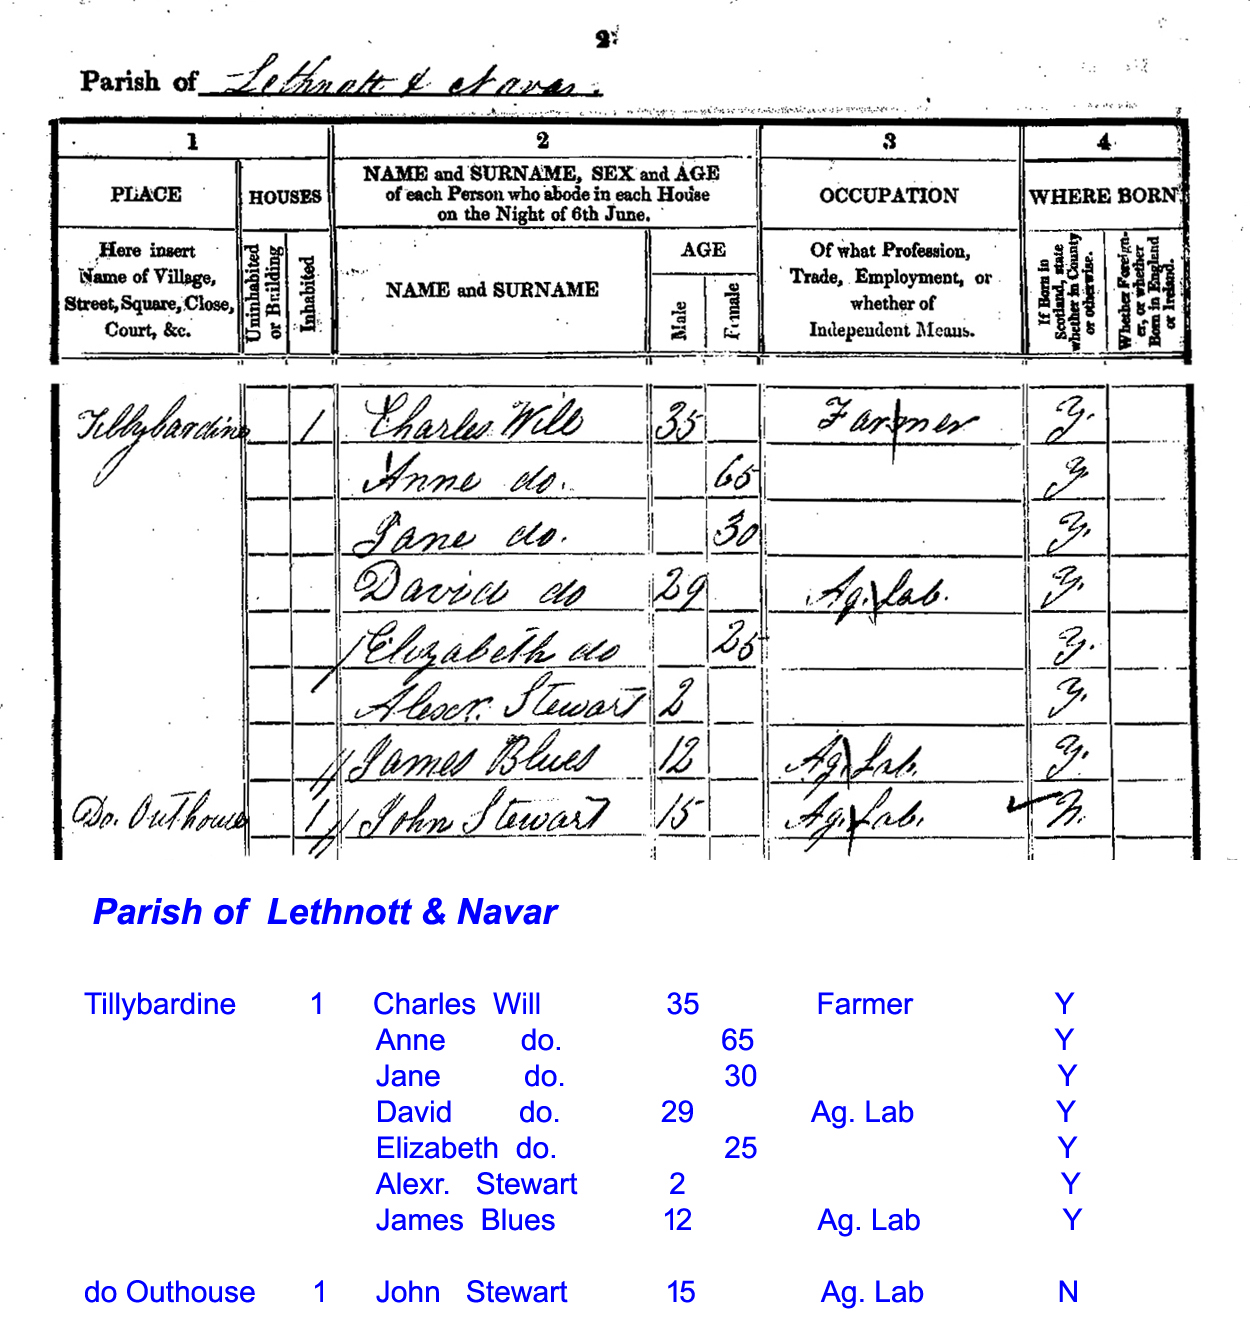 2
Parish of Lethnott & Navar.
1 2 3 4
PLACE HOUSES NAME and SURNAME, SEX and AGE of each Person who abode in each House on the Night of 6th June. OCCUPATION WHERE BORN
Here insert Name of Village, Street, Square, Close, Court, &c.
Uninhabited or Building
Inhabited
NAME and SURNAME
AGE
Male
Female
Of what Profession, Trade, Employment, or whether of Independent Means.
If Born in Scotland, state whether in County or otherwise.
Whether Foreigner, or whether Born in England or Ireland.
Tillybardine 1 Charles Will 35 Farmer Y.
Anne do. 65 Y
Jane do. 30 Y.
David do 29 Ag. Lab. Y.
Elizabeth do 25 Y.
Alexr. Stewart 2 Y.
James Blues 12 Ag. Lab. Y.
Do. Outhouse 1 John Stewart 15 Ag. Lab. N.
Parish of Lethnott & Navar
Tillybardine 1 Charles Will 35 Farmer Y
Anne do. 65 Y
Jane do. 30 Y
David do. 29 Ag. Lab Y
Elizabeth do. 25 Y
Alexr. Stewart 2 Y
James Blues 12 Ag. Lab Y
do Outhouse 1 John Stewart 15 Ag. Lab N